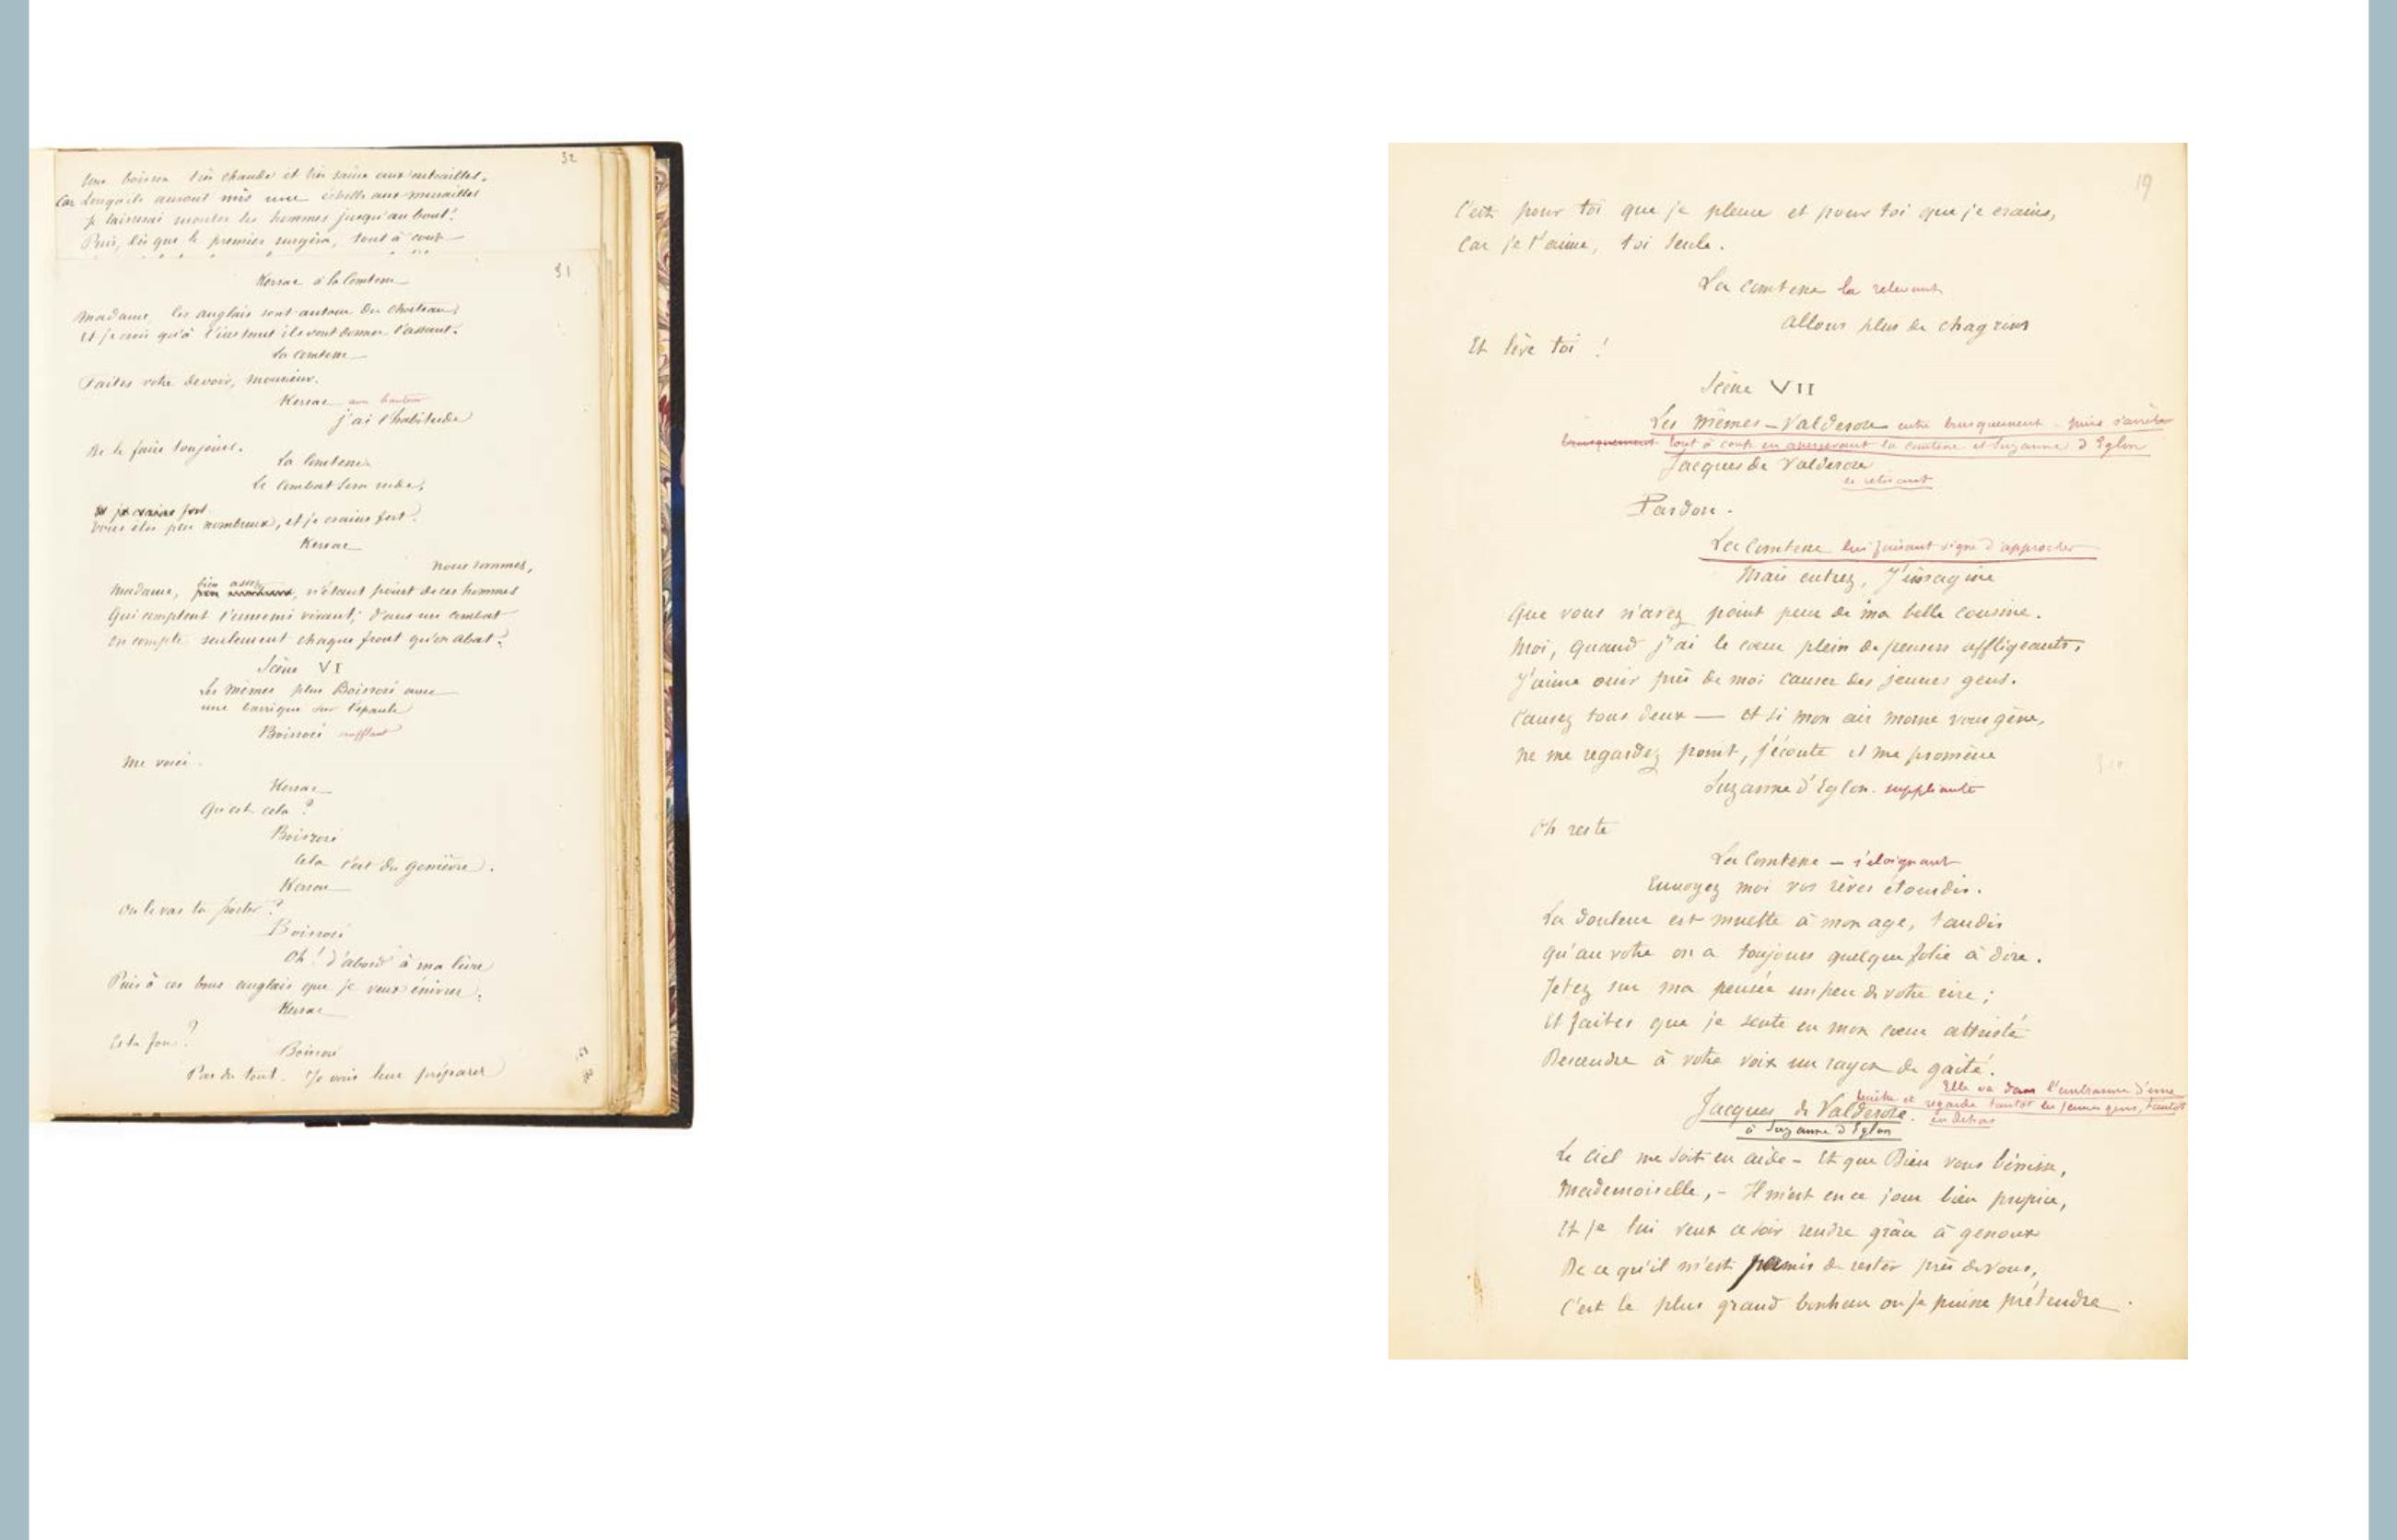 32
Une boisson très chaude et très saine aux entrailles.
Car lorsqu'ils auront mis une échelle aux murailles
Je laisserai monter les hommes jusqu'au bout!
Puis, dès que le premier surgira, tout à coup
31
Kersac à la Comtesse
Madame, les anglais sont autour du chateau;
Et je crois qu'à l'instant ils vont donner l'assaut.
La Comtesse
Faites votre devoir, Monsieur.
Kersac avec hauteur
j'ai l'habitude
De le faire toujours.
La Comtesse
Le Combat sera rude,
Et je crains fort
Vous êtes peu nombreux, et je crains fort.
Kersac
Nous sommes,
bien assez
Madame, peu nombreux, n'étant point de ces hommes
Qui comptent l'ennemi vivant; dans un combat
On compte seulement chaque front qu'on abat.
Scène VI
Les mêmes plus Boisrosé avec
une barrique sur l'épaule
Boisrosé soufflant
Me voici.
Kersac
Qu'est cela?
Boisrosé
Cela c'est du genièvre.
Kersac
Où le vas tu porter?
Boisrosé
Oh! d'abord à ma lèvre
Puis à ces bons anglais que je veux énivrer.
Kersac
Es tu fou?
Boisrosé
Pas du tout. Je vais leur préparer
19
C'est pour toi que je pleure et pour toi que je crains,
Car je t'aime, toi seule.
La Comtesse la relevant
Allons plus de chagrins
Et lève toi!
Scène VII
Les Mêmes - Valderose entre brusquement puis s'arrête
brusquement tout à coup en apercevant la comtesse et Suzanne d'Eglou
Jacques de Valderose
se retirant
Pardon.
La Comtesse lui faisant signe d'approcher
Mais entrez, J'imagine
Que vous n'avez point peur de ma belle cousine.
Moi, quand j'ai le cœur plein de pensers affligeants,
J'aime ouir près de moi causer des jeunes gens.
Causez tous deux — et si mon air morne vous gêne,
Ne me regardez point, j'écoute et me promène
Suzanne d'Eglou. suppliante
Oh reste
La Comtesse — s'éloignant
Envoyez moi vos rêves étourdis.
La douleur est muette à mon age, tandis
Qu'au votre on a toujours quelque folie à dire.
Jetez sur ma pensée un peu de votre rire;
Et faites que je sente en mon cœur attristé
Descendre à votre voix un rayon de gaité.
Elle va dans l'embrasure d'une
fenêtre et regarde tantôt les jeunes gens, tantôt
en dehors
Jacques de Valderose.
à Suzanne d'Eglou
Le Ciel me soit en aide - Et que Dieu vous bénisse,
Mademoiselle, - Il m'est en ce jour bien propice,
Et je lui veux ce soir rendre grâce à genoux
De ce qu'il m'est permis de rester près de vous,
C'est le plus grand bonheur où je puisse prétendre.